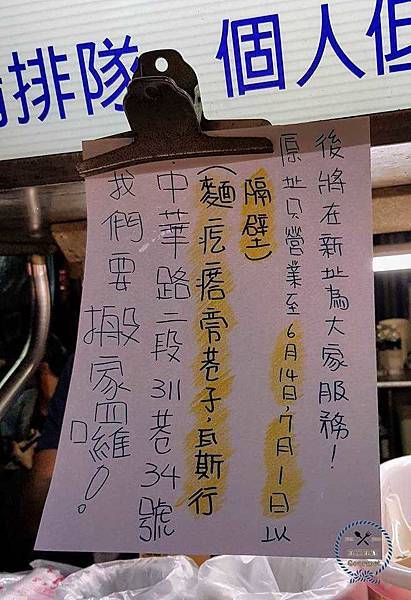 排隊 個人
我們要搬家囉!
中華路二段311巷34號
(麵疙瘩旁巷子,瓦斯行
隔壁)
原址只營業至6月14日,7月1日以
後將在新址為大家服務!